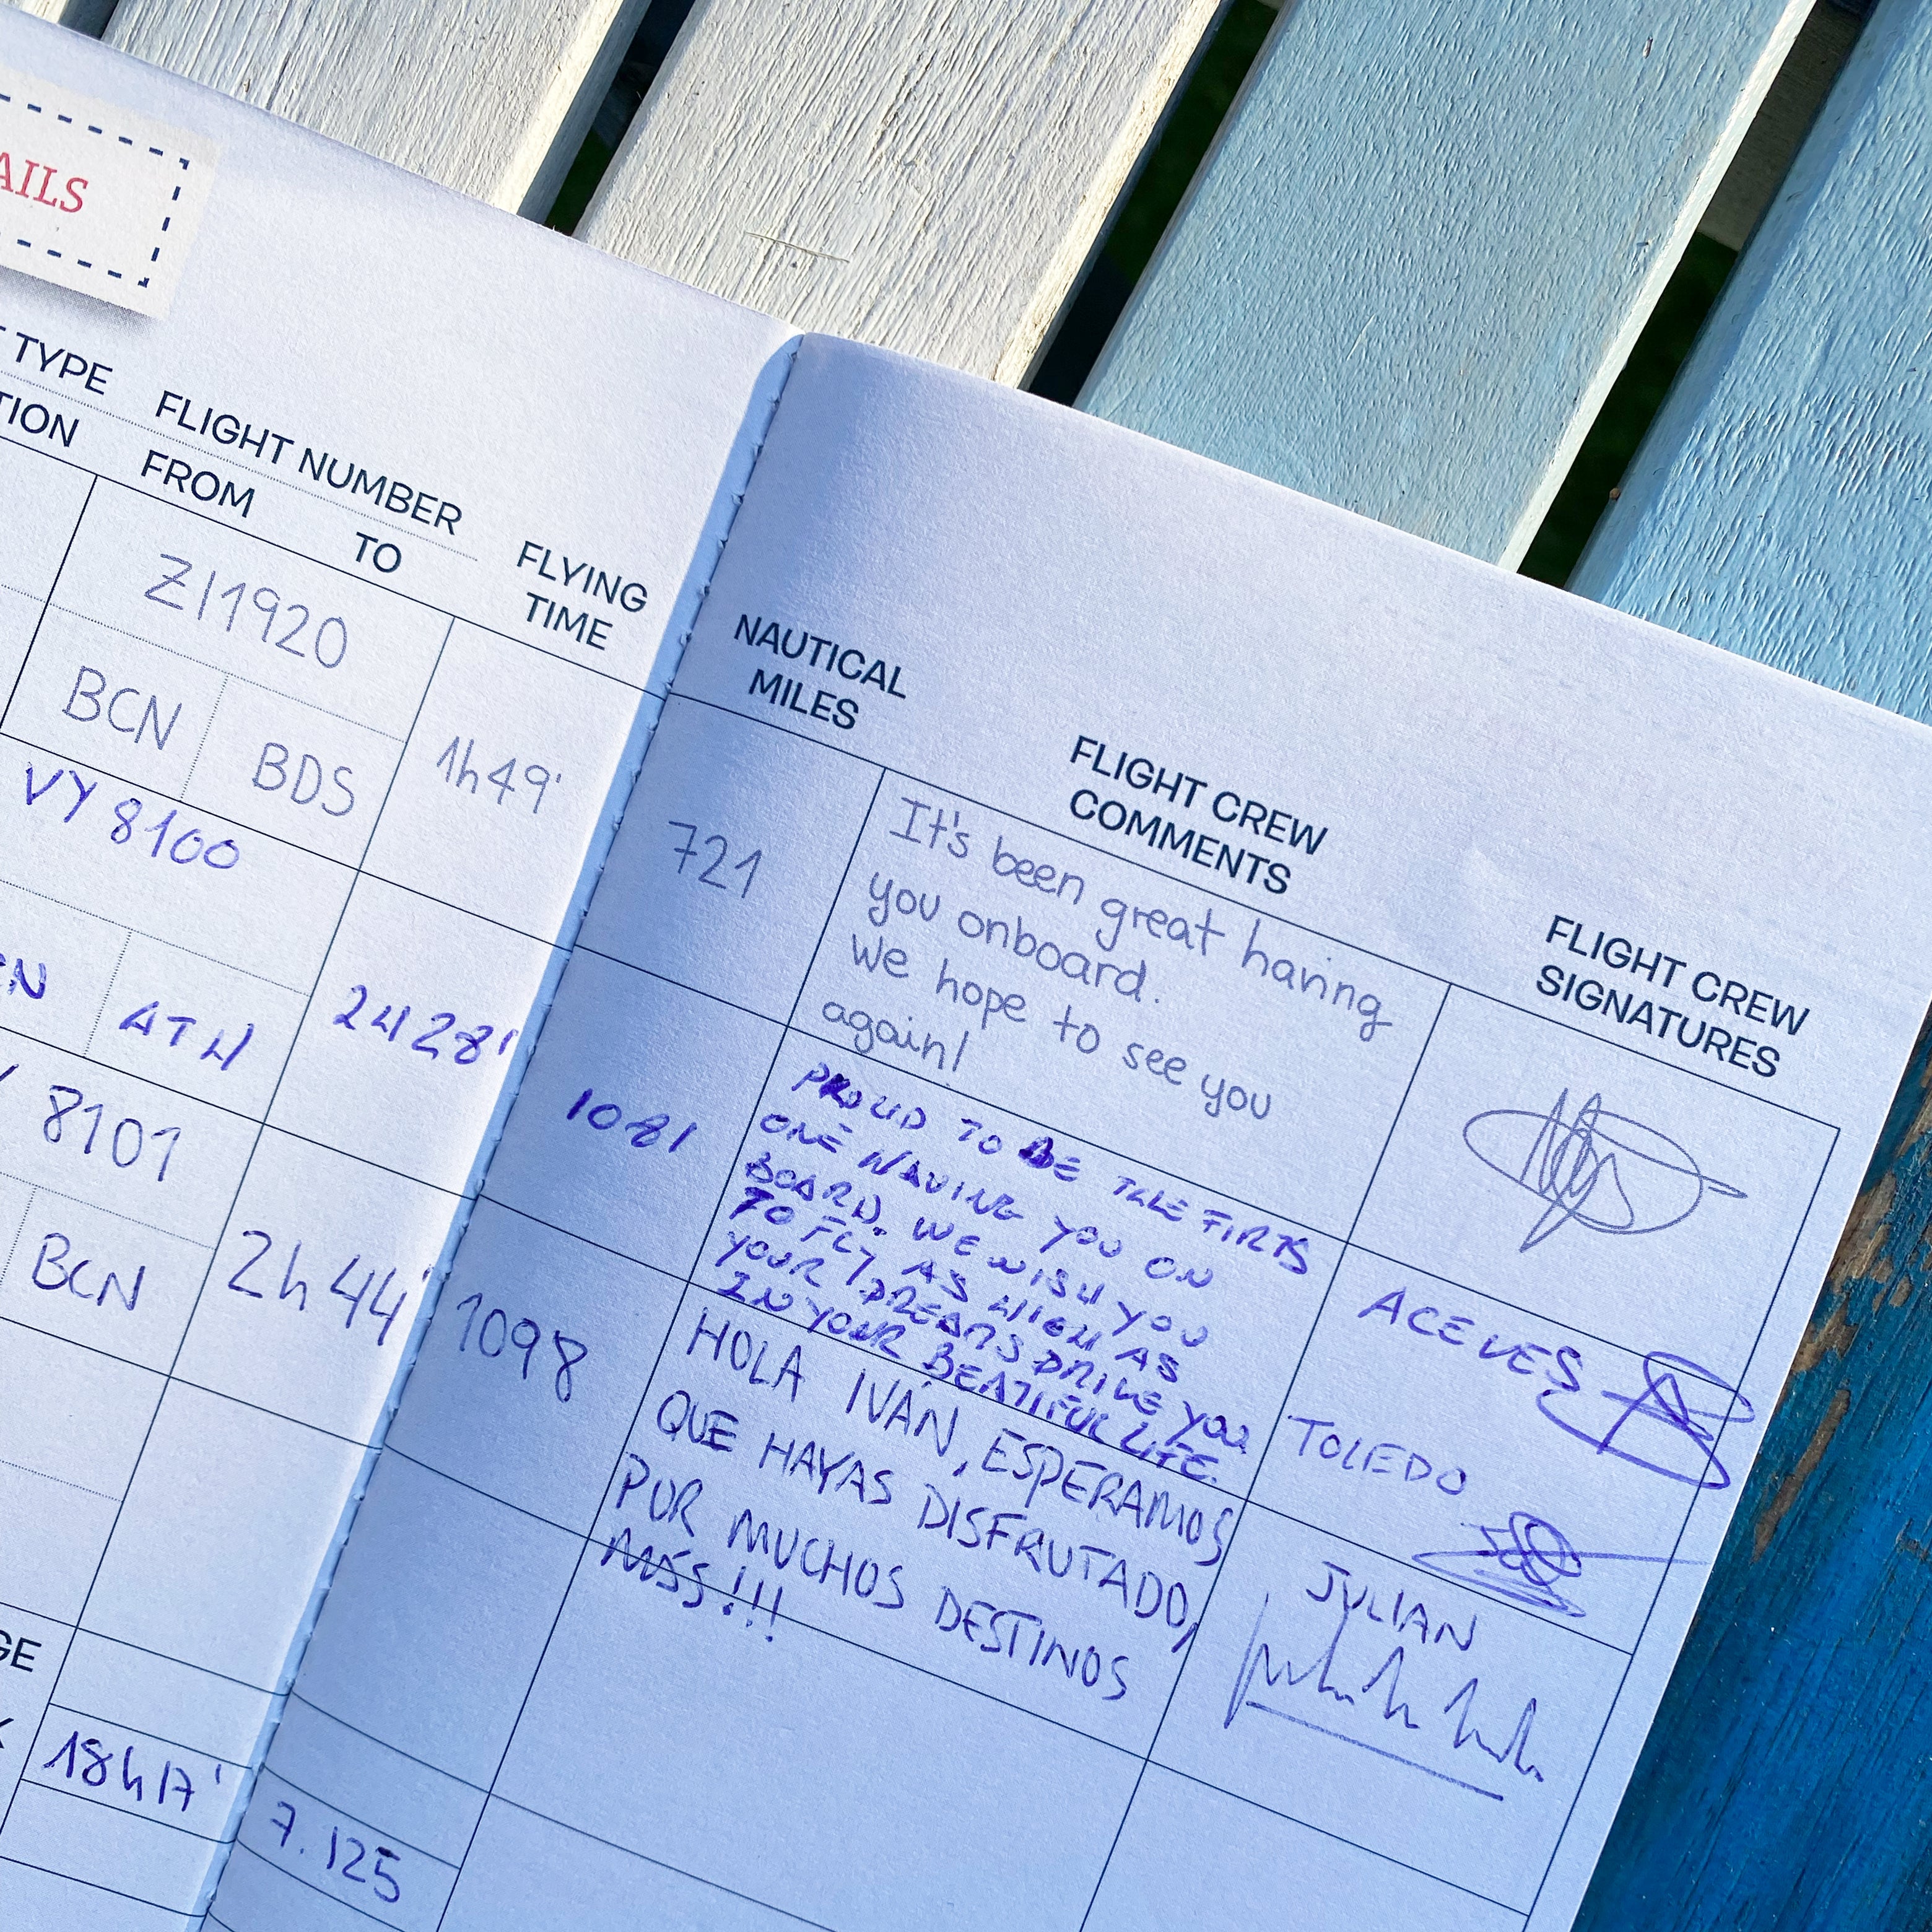 AILS
TYPE FLIGHT NUMBER
TION FROM TO FLYING
TIME
ZI1920
BCN BDS 1h49'
VY 8100
ATH 2H28'
8101
BCN 2h44'
GE
18h17'
NAUTICAL
MILES
FLIGHT CREW
COMMENTS
FLIGHT CREW
SIGNATURES
721
It's been great having
you onboard.
We hope to see you
again!
1081
PROUD TO BE THE FIRTS
ONE HAVING YOU ON
BOARD. WE WISH YOU
TO FLY AS HIGH AS
YOUR DREAMS DRIVE YOU
IN YOUR BEATIFUL LIFE.
ACEVES
TOLEDO
1098
HOLA IVÁN, ESPERAMOS
QUE HAYAS DISFRUTADO,
POR MUCHOS DESTINOS
MÁS!!!
JULIAN
7.125